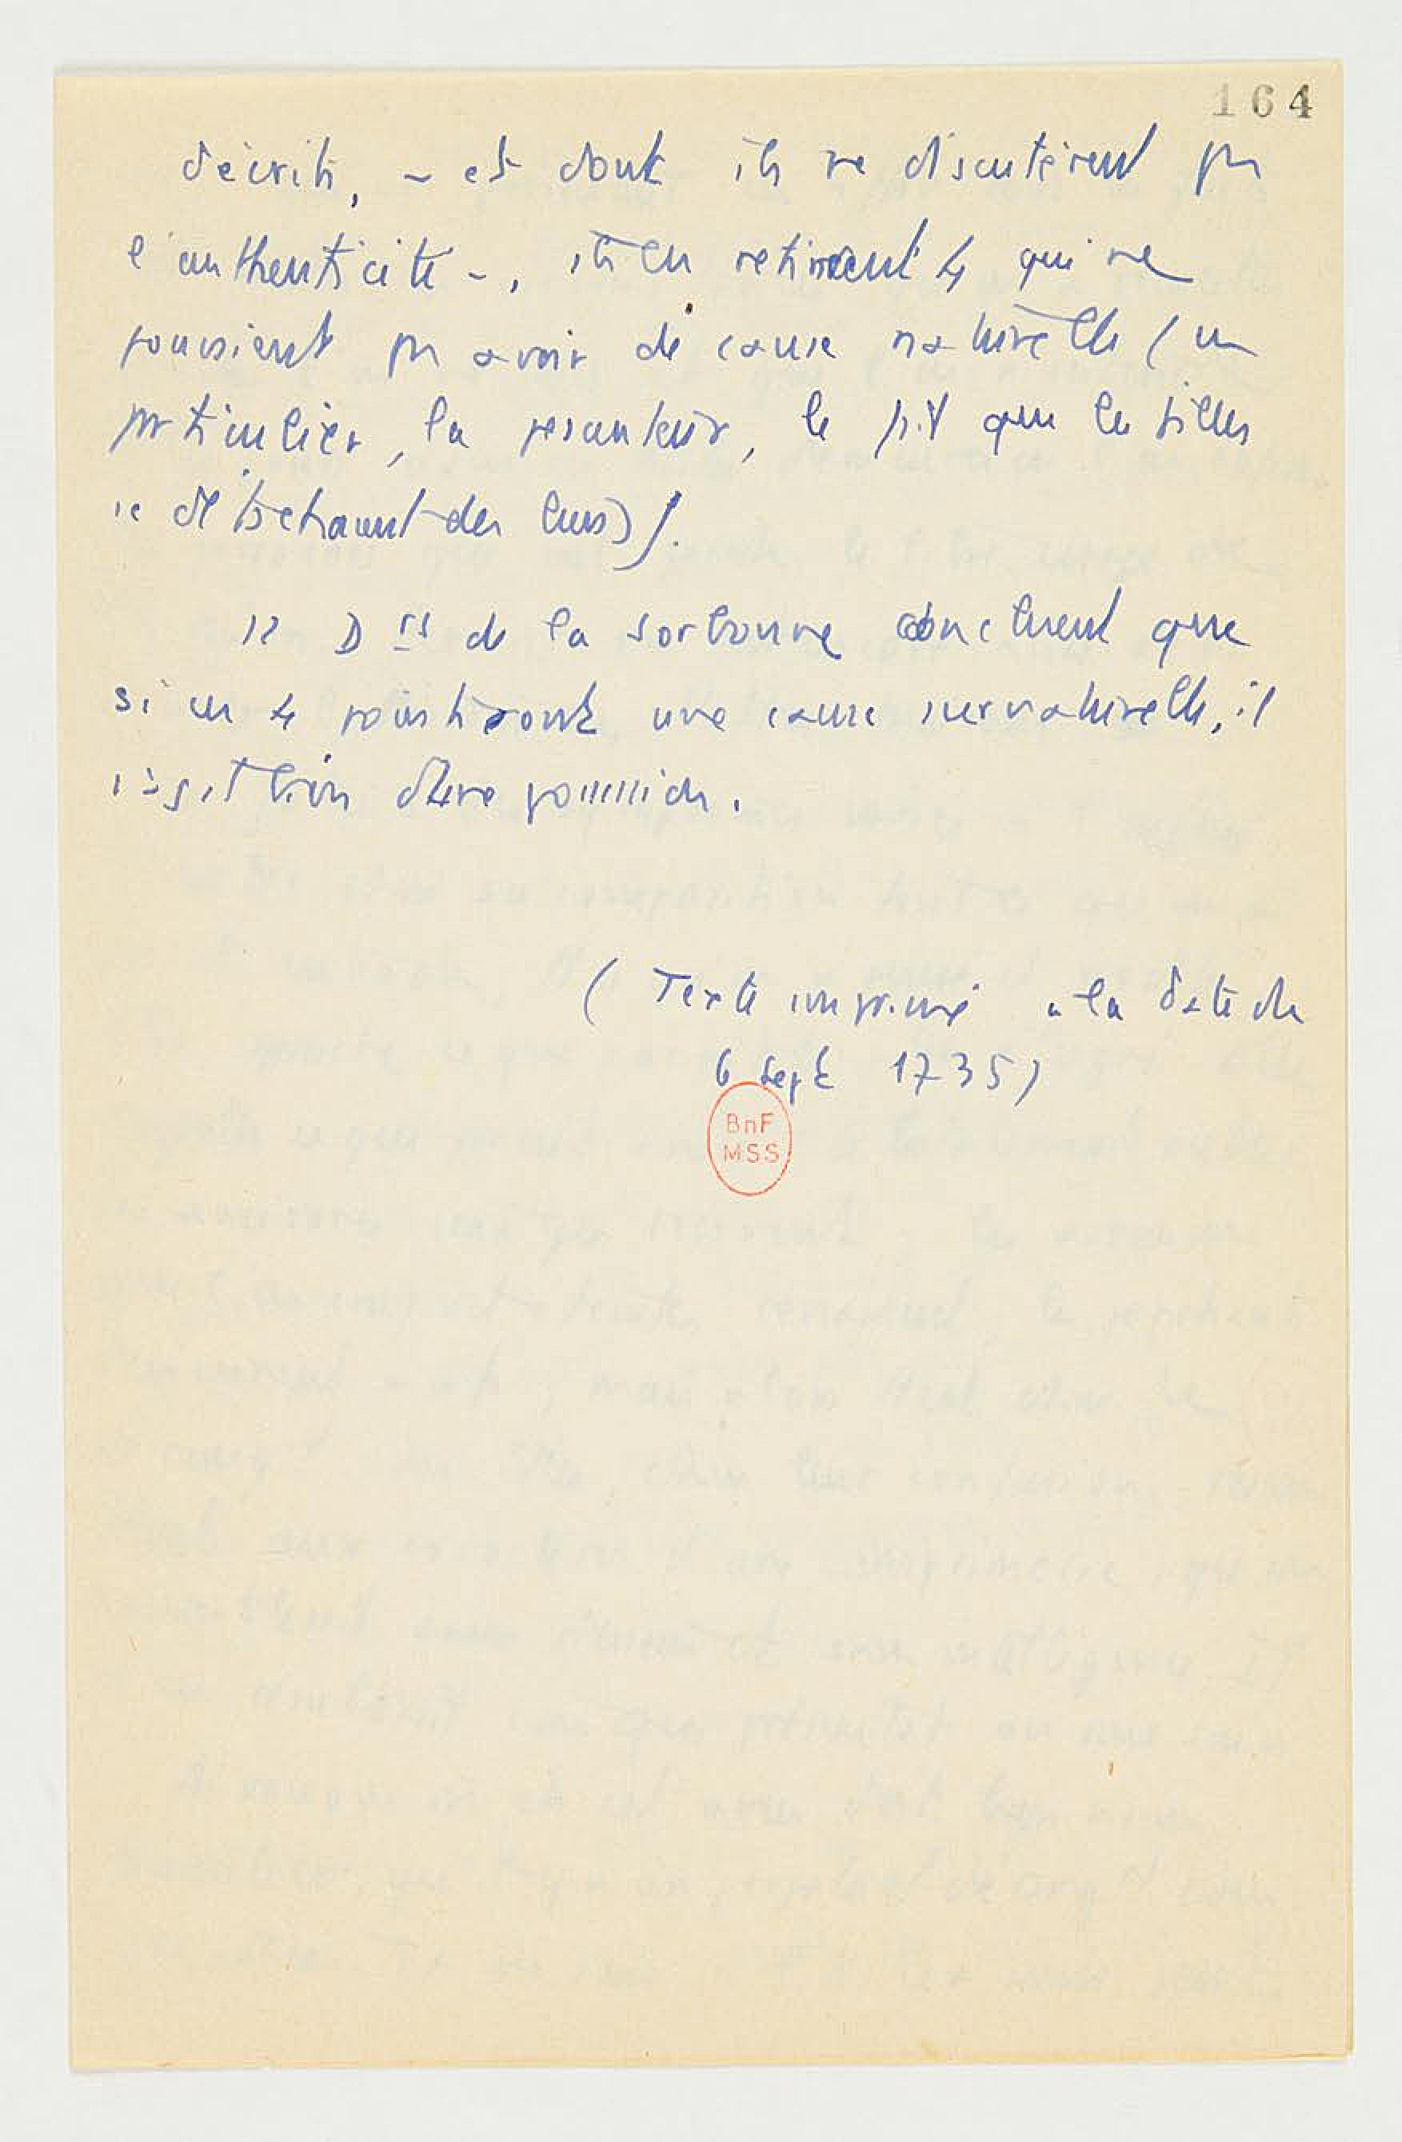 164
décrits, – et dont ils ne discutèrent pas
l'authenticité –, ils en retinrent 4 qui ne
pouvaient pas avoir de cause naturelle (en
particulier, la pesanteur, le fait que les filles
se
12 Drs de la Sorbonne concluent que
si ces 4 une cause surnaturelle, il
s'agit bien d'une possession.
(Texte imprimé à la date du
6 Sept 1735)
BnF
MSS